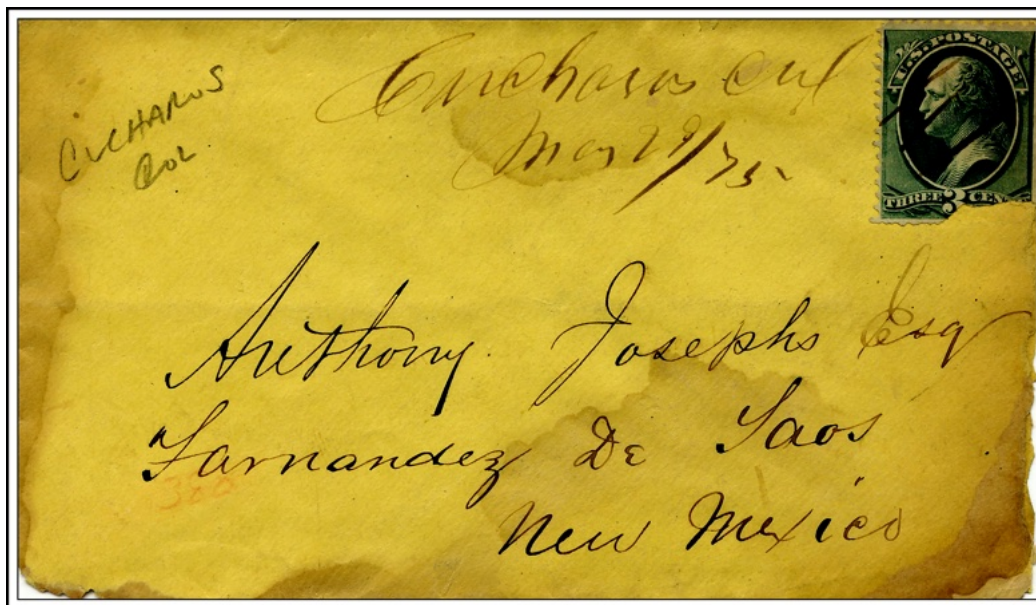 Cucharas Col
May 29/75
CUCHARUS
COL
U.S. POSTAGE
THREE 3 CEN
Anthony Josephs Esq
Farnandez De Taos
New Mexico
300